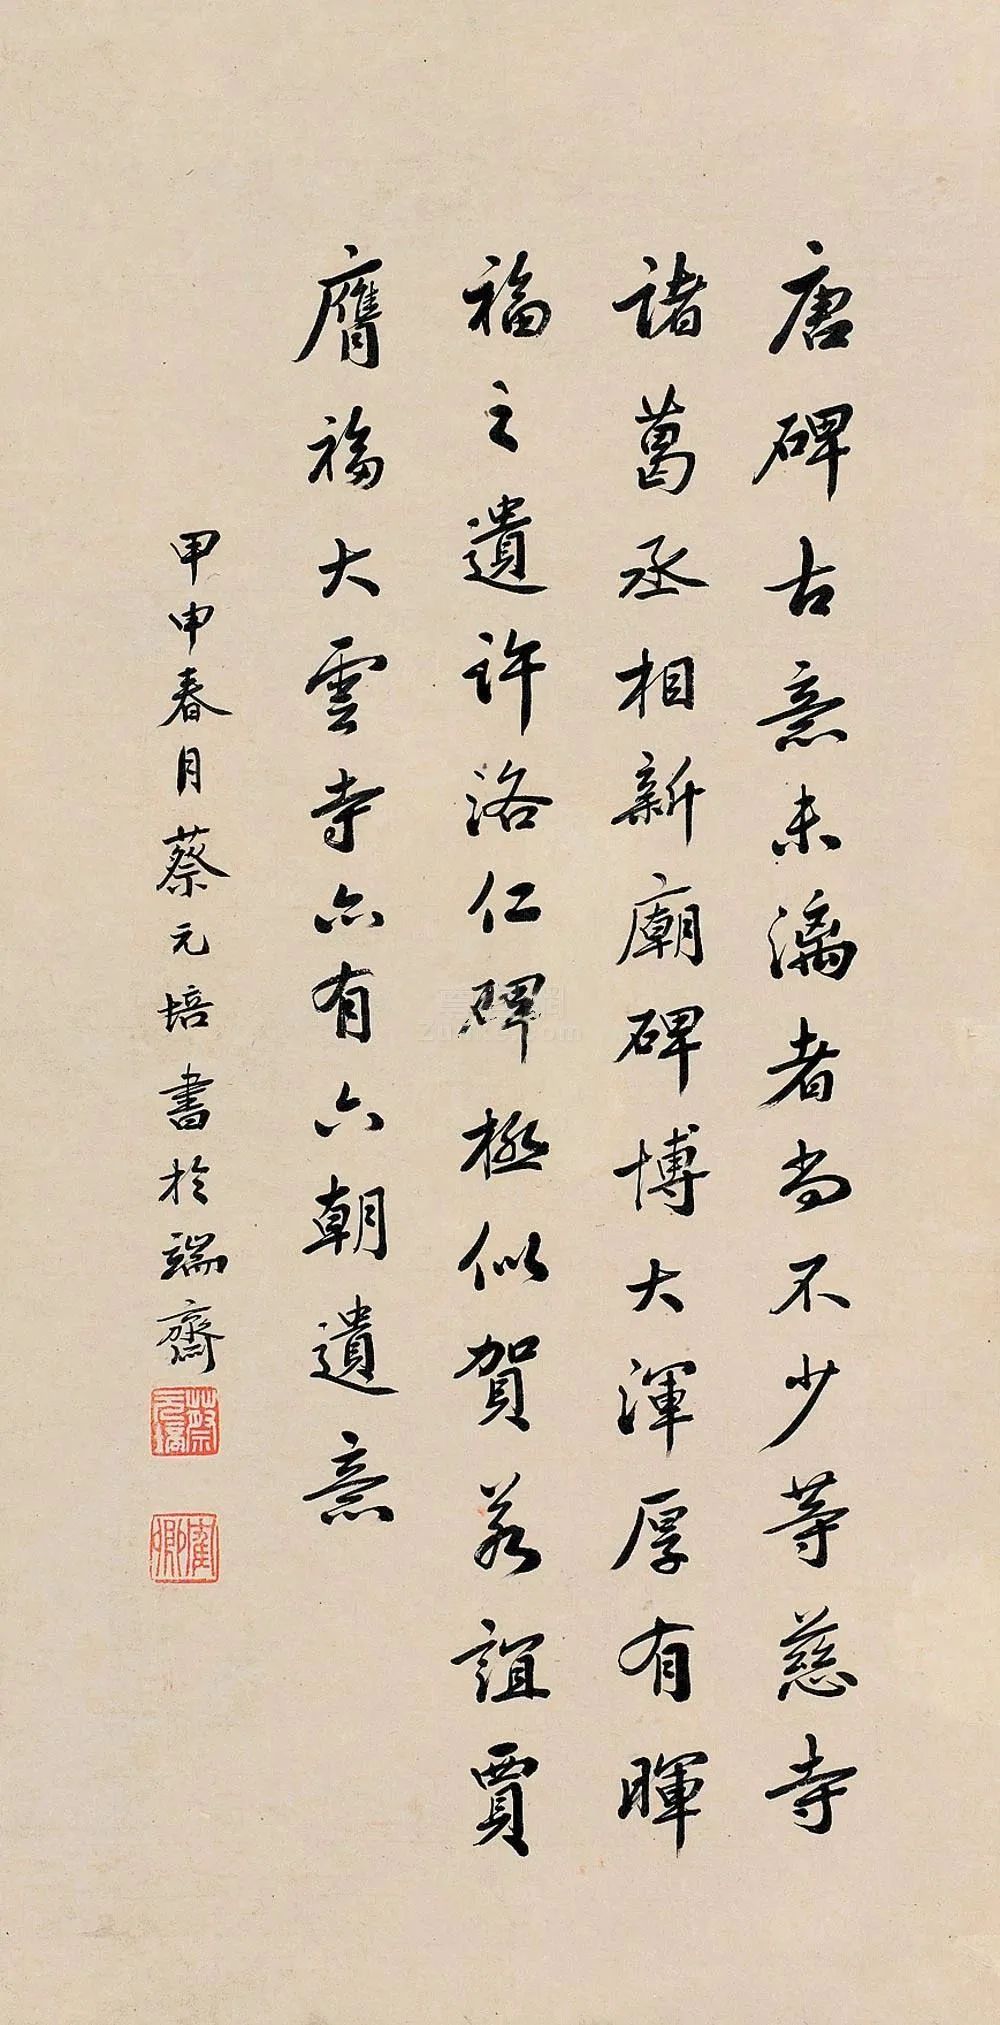 唐碑古意未漓者尚不少等慈寺
諸葛丞相新廟碑博大渾厚有暉
福之遺許洛仁碑極似賀若誼賈
膺福大雲寺亦有六朝遺意
甲申春月蔡元培書於端齋
蔡元培